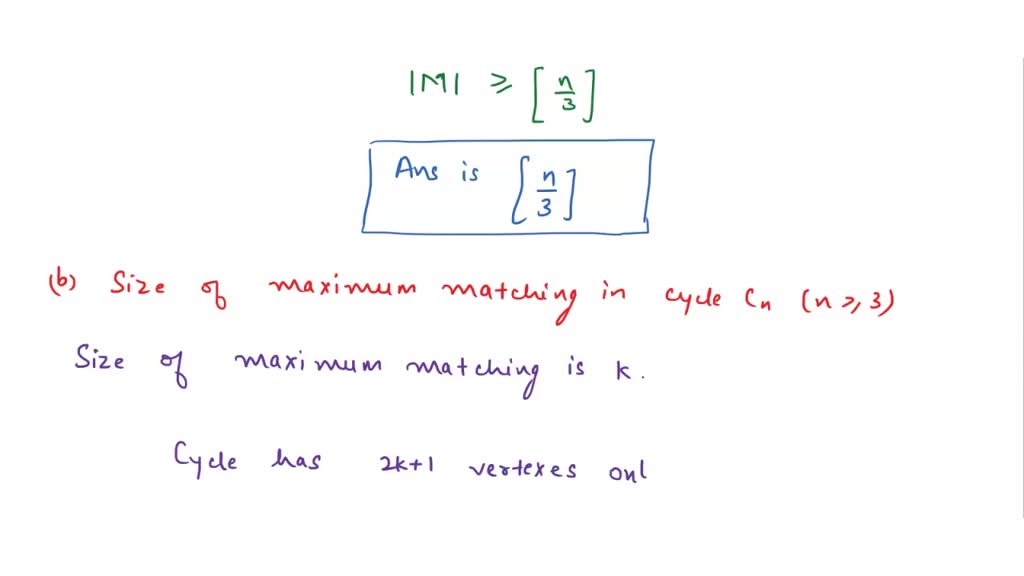 |M| ≥ [n/3]
Ans is [n/3]
(b) Size of maximum matching in cycle Cn (n ≥ 3)
Size of maximum matching is k.
Cycle has 2k+1 vertexes onl